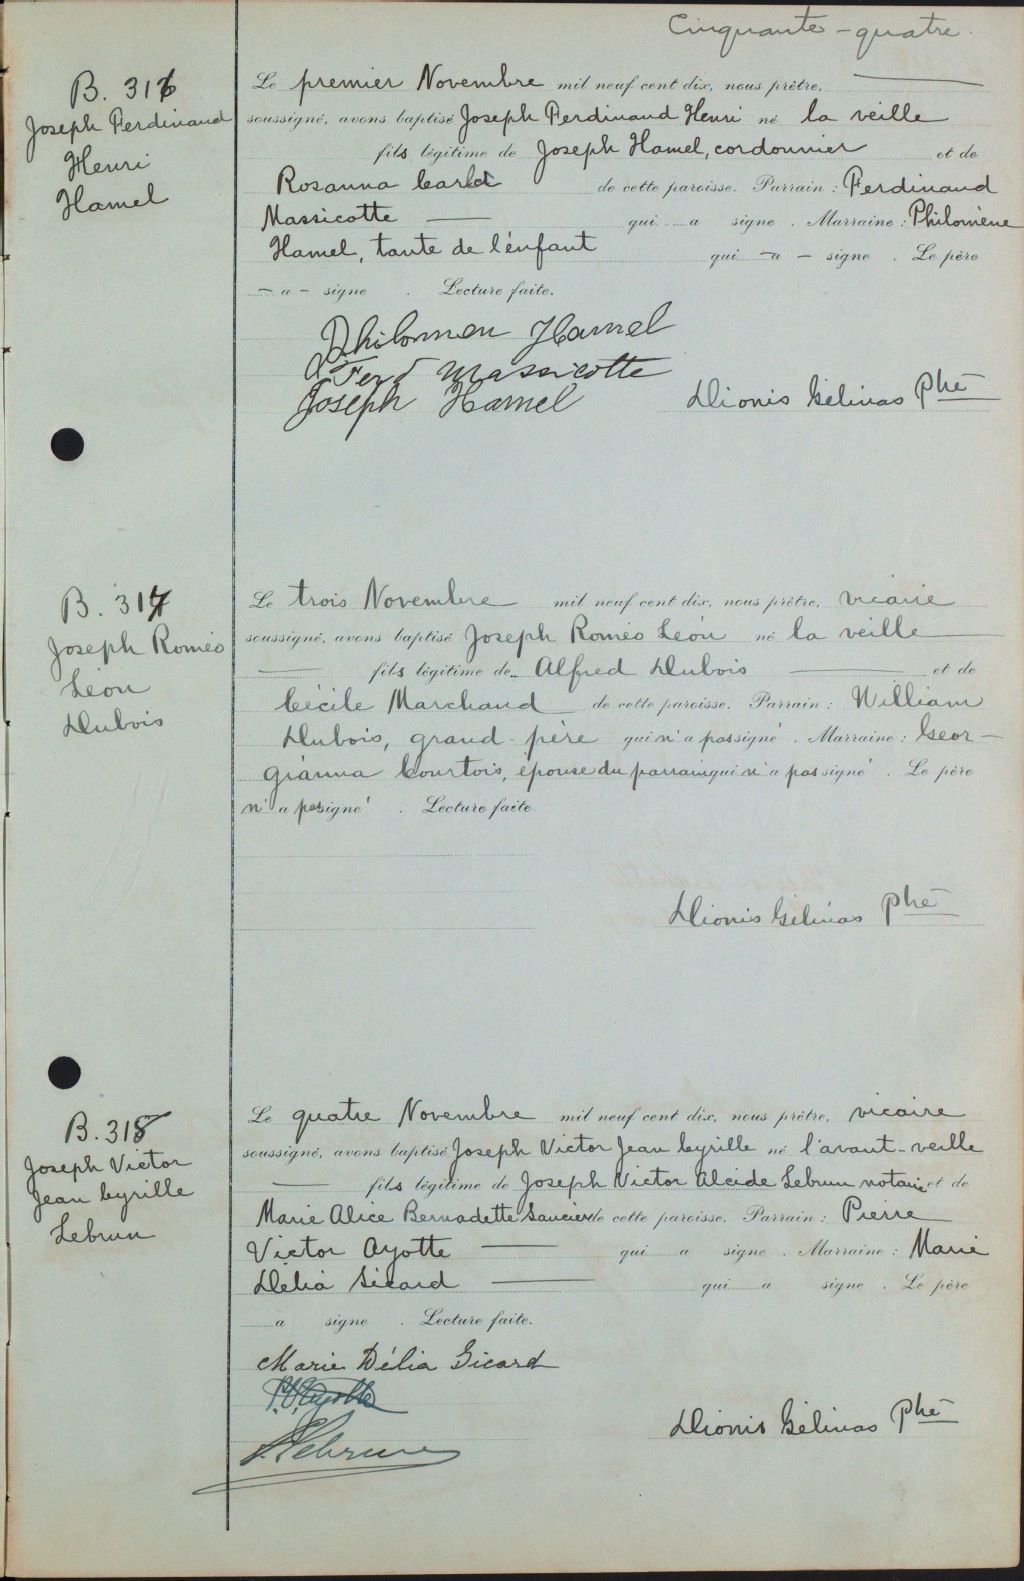 Cinquante-quatre.
B. 316
Joseph Ferdinand
Henri
Hamel
Le premier Novembre mil neuf cent dix, nous prêtre,
soussigné, avons baptisé Joseph Ferdinand Henri né la veille
fils légitime de Joseph Hamel, cordonnier et de
Rosanna de cette paroisse. Parrain : Ferdinand
Massicotte qui a signé. Marraine : Philomène
Hamel, tante de l'enfant qui a signé. Le père
a signé. Lecture faite.
Philomen Hamel
Ferd Massicotte
Joseph Hamel
Dionis Gélinas Ptre
B. 317
Joseph Roméo
Léon
Dubois
Le trois Novembre mil neuf cent dix, nous prêtre, vicaire
soussigné, avons baptisé Joseph Roméo Léon né la veille
fils légitime de Alfred Dubois et de
Cécile Marchand de cette paroisse. Parrain : William
Dubois, grand-père qui n'a pas signé. Marraine : Geor-
gianna Courtois, épouse du parrain qui n'a pas signé. Le père
n'a pas signé. Lecture faite.
Dionis Gélinas Ptre
B. 318
Joseph Victor
Jean Cyrille
Lebrun
Le quatre Novembre mil neuf cent dix, nous prêtre, vicaire
soussigné, avons baptisé Joseph Victor Jean Cyrille né l'avant-veille
fils légitime de Joseph Victor Alcide Lebrun notaire et de
Marie Alice Bernadette Saucier de cette paroisse. Parrain : Pierre
Victor Ayotte qui a signé. Marraine : Marie
Délia Sicard qui a signé. Le père
a signé. Lecture faite.
Marie Délia Sicard
P.V. Ayotte
Lebrun
Dionis Gélinas Ptre